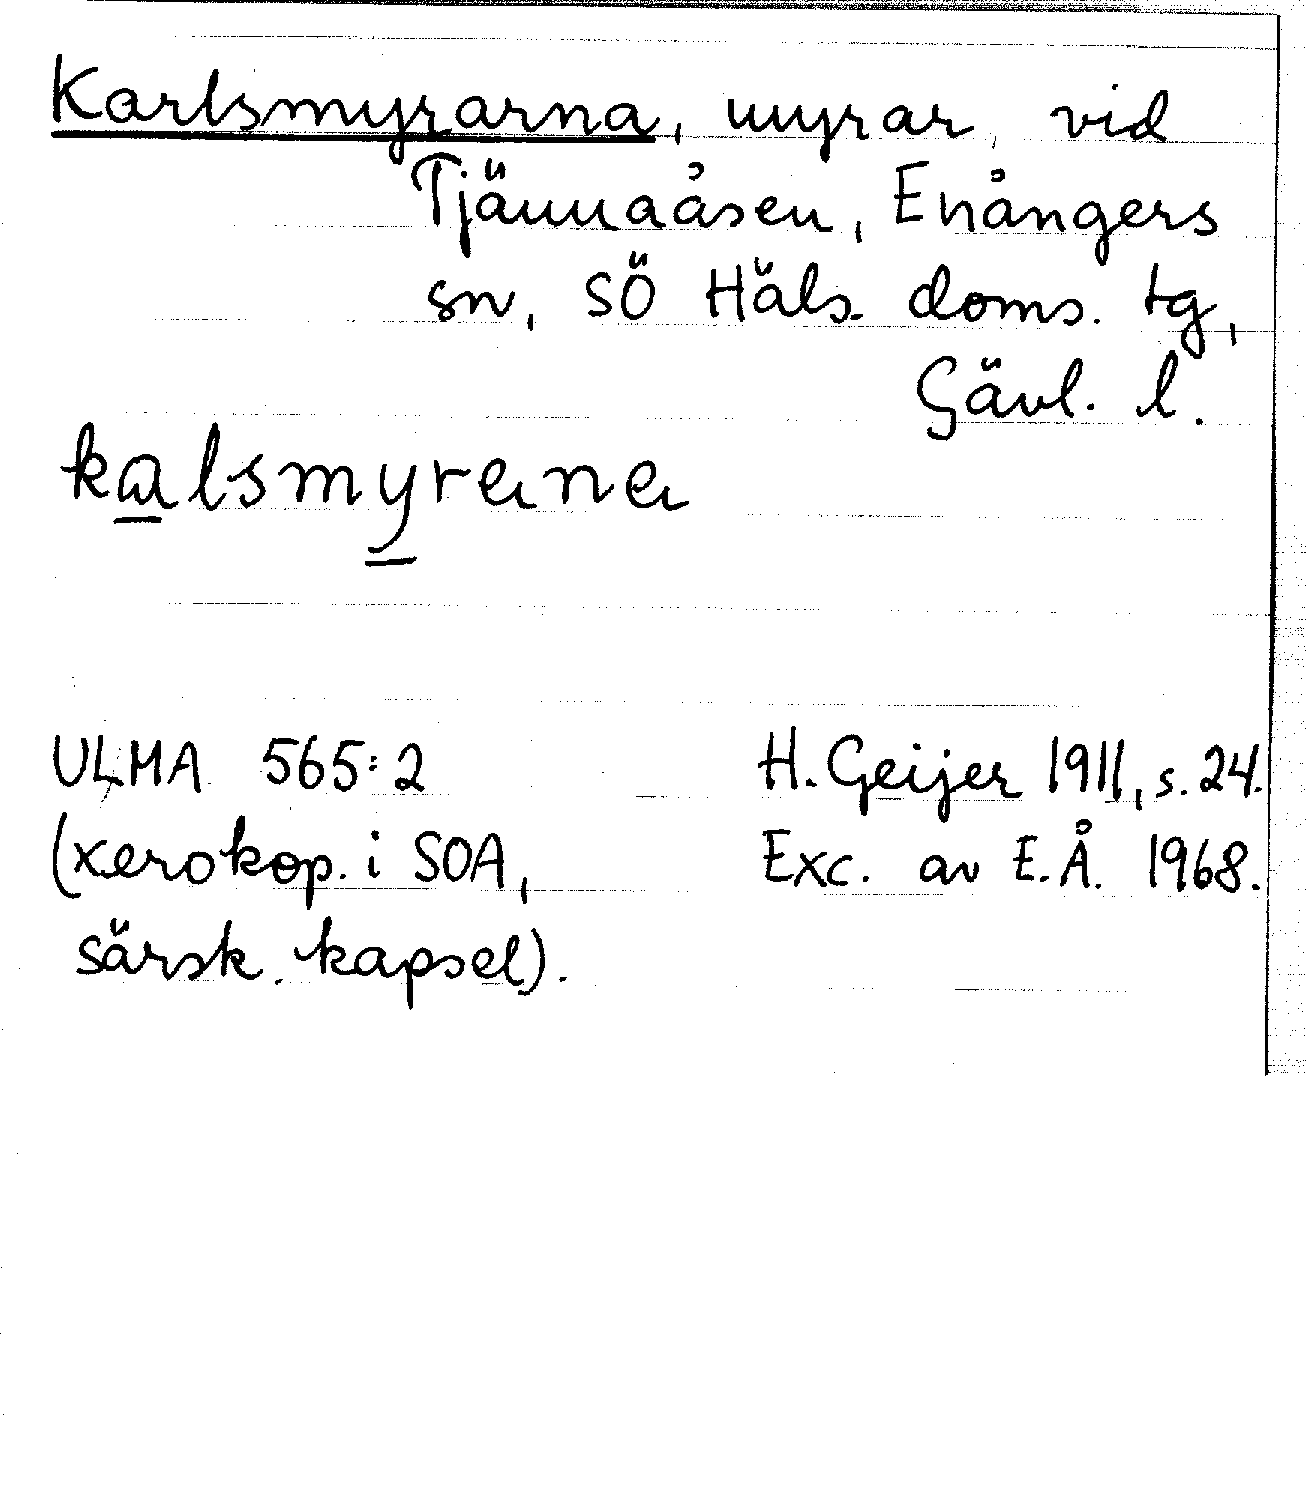 Karlsmyrarna, myrar, vid
Tjännaåsen, Enångers
sn, SÖ Häls. doms. tg,
Gävl. l.
kalsmyrana
ULMA 565:2 H. Geijer 1911, s. 24.
(xerokop. i SOA, Exc. av E.Å. 1968.
särsk. kapsel).